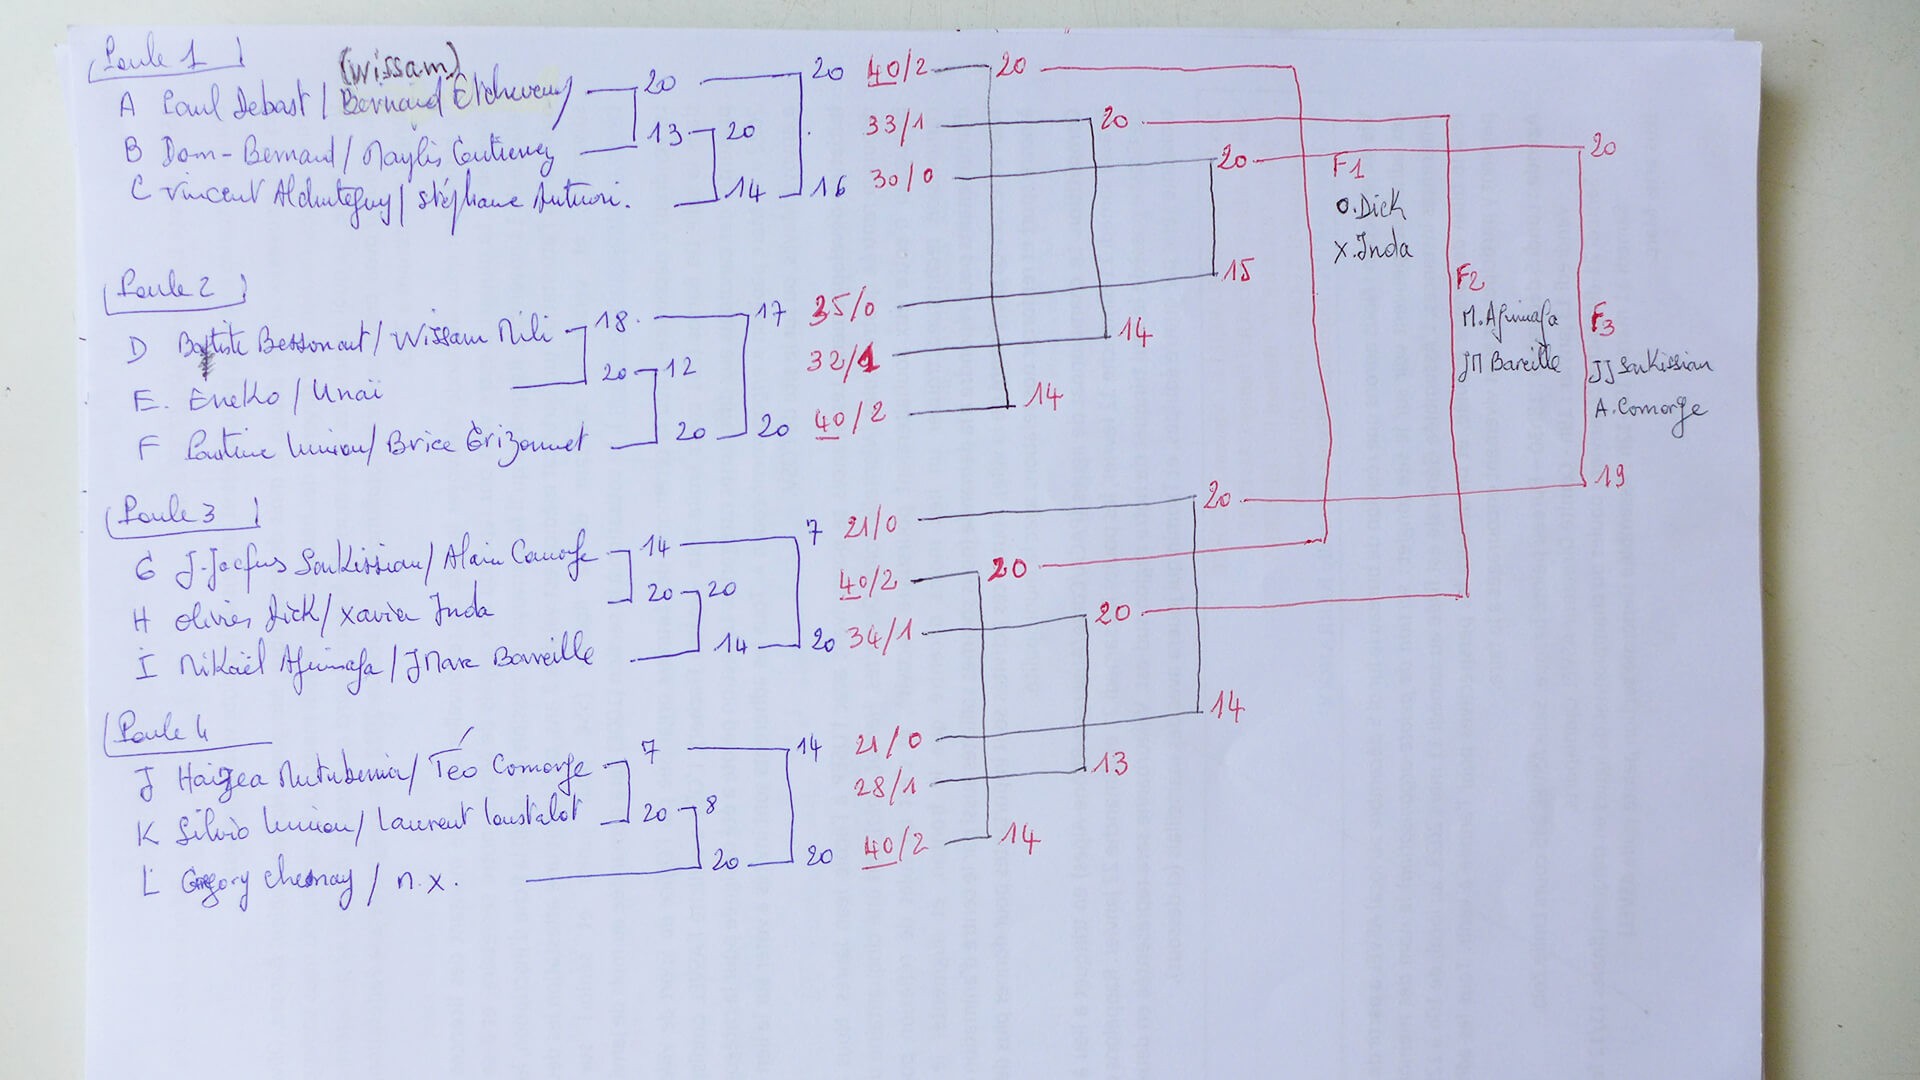 Poule 1
(Wissam)
A Paul Debast / Bernard Etcheverry 20 20 40/2 20
B Dom-Bernard / Maylis Goutienez 13 20 33/1 20
C Vincent / Stéphane Autuori. 14 16 30/0 20 20
F1
O.Dick
X.Inda
15
Poule 2
D Battiste Bessonart / Wissam Mili 18 17 35/0 14
E. Eneko / Unaï 20 12 32/1
F Pantxi / Brice Grizonnet 20 20 40/2 14
F2
M.
JM Bareille
F3
JJ Sarkissian
A. Comorge
19
Poule 3
G J-Jacques Sarkissian / Alain Comorge 14 7 21/0 20
H Olivier Dick / Xavier Inda 20 20 40/2 20
I Mikaël / JMarc Barreille 14 20 34/1 20
Poule 4
J Haizea / Téo Comorge 7 14 21/0 14
K Silvio / Laurent Loustalot 20 8 28/1 13
L Grégory Chesnay / n.x. 20 20 40/2 14